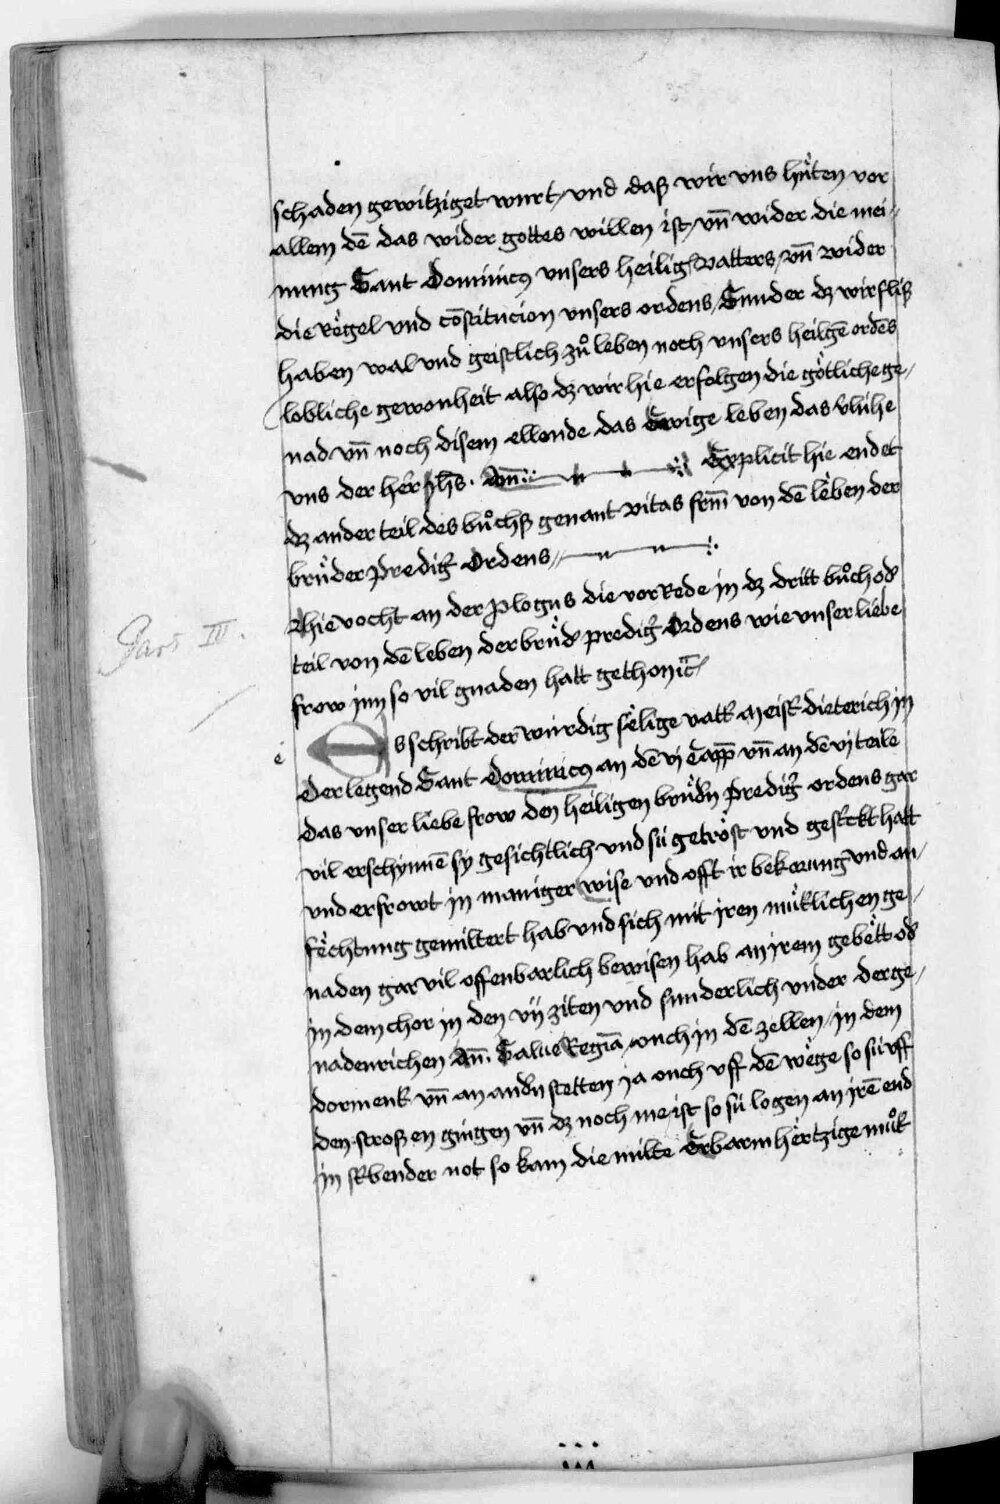 schaden gewitziget wurt / vnd daß wir vns huͤten vor
allem dē das wider gottes willen ist / vn̄ wider die mei⸗
nung Sant Dominicꝯ vnsers heilig vatters / vn̄ wider
die Regel vnd cōstitucion vnsers ordens / Sunder dz wir fliß
haben wal vnd geistlich zuͦ leben noch vnsers heilgē ordēs
lobliche gewonheit also dz wir hie erfolgen die goͤtliche ge⸗
nad vn̄ noch disem ellende das Ewige leben das v̓lihe
vns der her jhs̄. Am̄ Explicit hie endet
dz ander teil des buͦchß genant vitas frm̄ von dē leben der
bruͤder prediḡ Ordens
hie vocht an der plogus die vor Rede in dz dritt buͦch od̓
teil von dē leben der bruͤd̓ prediḡ Ordens wie vnser liebe
frow jnn so vil gnaden hatt gethon
Pars III.
é
Es schribt der wurdig selige vatt̓ meist̓ dieterich in
Der legend Sant Dominicꝯ an dē vj capp̄ vn̄ an dē vj teile
Das vnser liebe frow den heiligen bruͤdn̓ prediḡ ordens gar
vil erschynnē sy gesichtlich vnd sú getroͤst vnd gest̓ckt hatt
vnd erfrowt in maniger wise vnd offt ir bekorung vnd an⸗
fechtung gemiltert hab vnd sich mit jren muͤt̓lichen ge⸗
naden gar vil offenbarlich bewisen hab an jrem gebett od̓
in dem chor in den vij ziten vnd sunderlich vnder der ge⸗
nadenrichen An̄. Salue Regīa / ouch in dē zellen / in dem
dormenter vn̄ an andn̓ stetten ja ouch vff dē wege so sú vff
den strossen gingen vn̄ dz noch me ist so sú logen an jrē end
in st̓bender not so kam die milte Erbarmhertzige muͦt̓